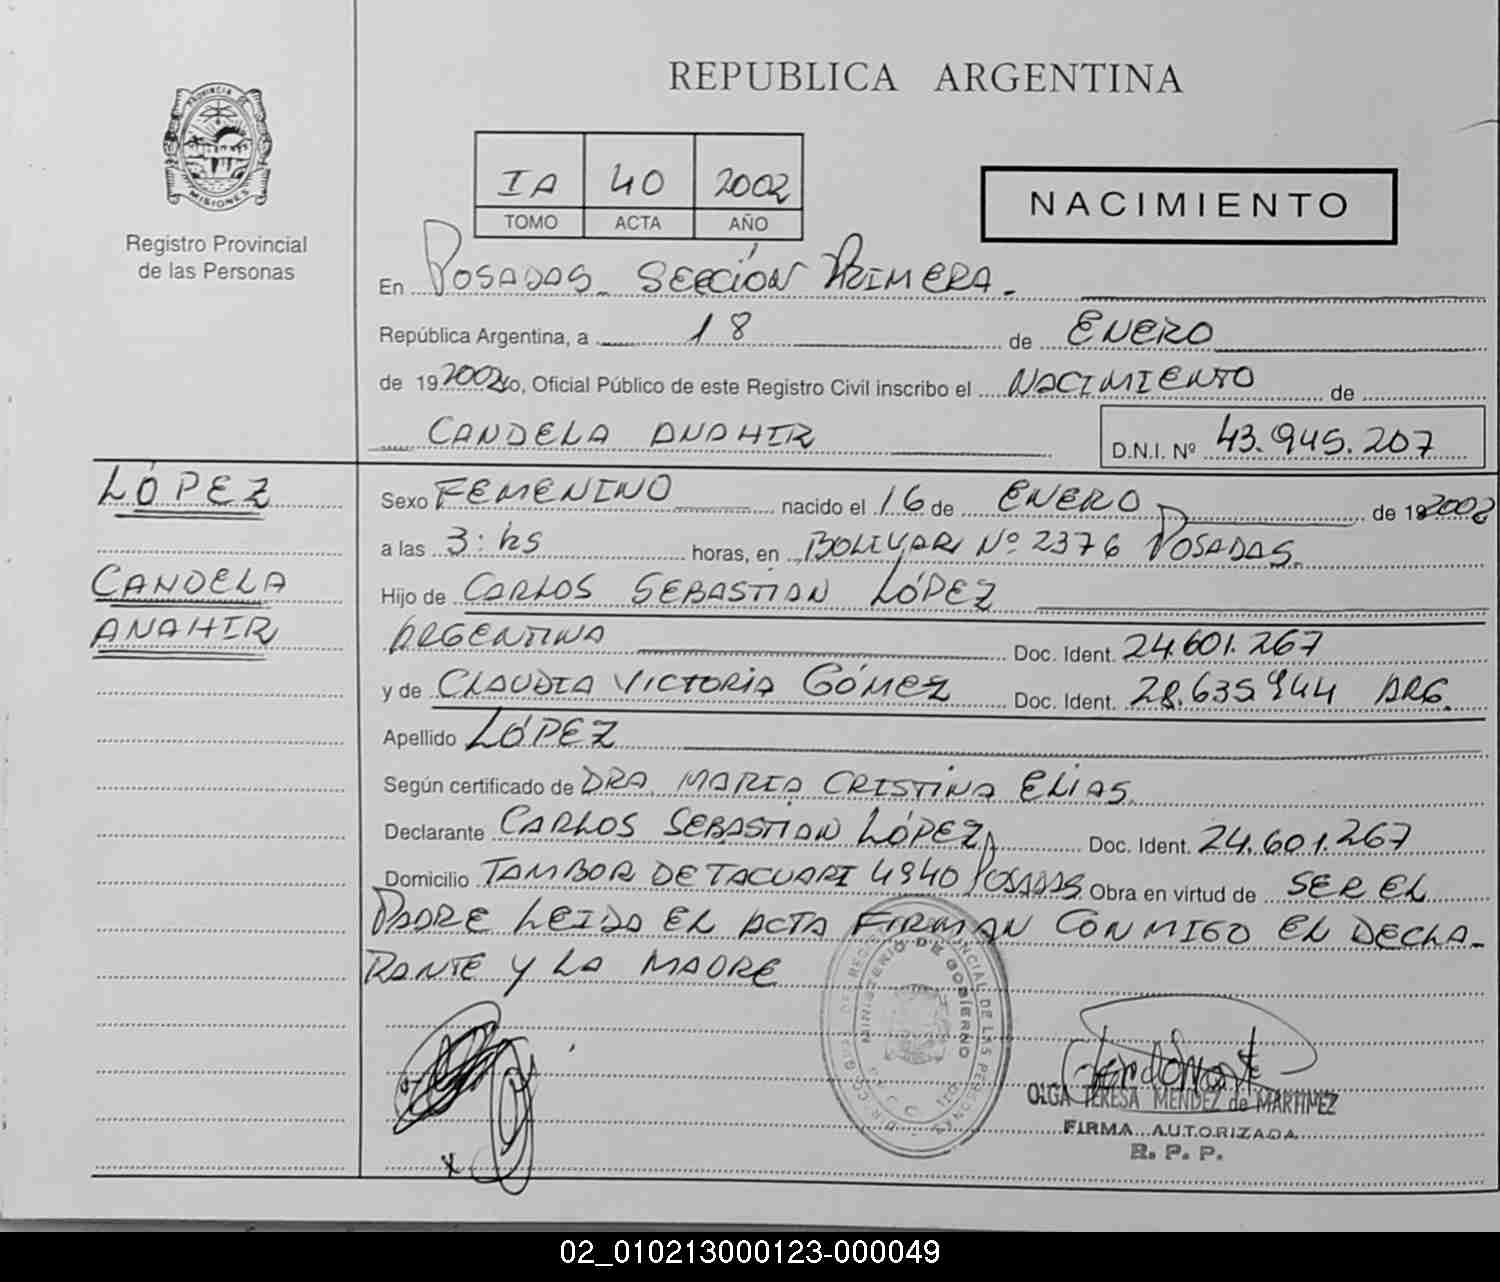 REPUBLICA ARGENTINA
PROVINCIA DE
MISIONES
Registro Provincial
de las Personas
IA 40 2002
TOMO ACTA AÑO
NACIMIENTO
En POSADAS - SECCIÓN PRIMERA.-
República Argentina, a 18 de ENERO
de 19 2002 Yo, Oficial Público de este Registro Civil inscribo el NACIMIENTO de
CANDELA ANAHIR
D.N.I. Nº 43.945.207
LÓPEZ
CANDELA
ANAHIR
Sexo FEMENINO nacido el 16 de ENERO de 19 2002
a las 3: hs horas, en BOLIVAR Nº 2376 POSADAS.
Hijo de CARLOS SEBASTIAN LÓPEZ
ARGENTINA Doc. Ident. 24.601.267
y de CLAUDIA VICTORIA GÓMEZ Doc. Ident. 28.635.944 ARG.
Apellido LÓPEZ
Según certificado de DRA. MARIA CRISTINA ELIAS.
Declarante CARLOS SEBASTIAN LÓPEZ Doc. Ident. 24.601.267
Domicilio TAMBOR DE TACUARI 4940 POSADAS Obra en virtud de SER EL
PADRE LEIDO EL ACTA FIRMAN CONMIGO EL DECLA-
RANTE Y LA MADRE
MINISTERIO DE GOBIERNO
OLGA TERESA MENDEZ de MARTINEZ
FIRMA AUTORIZADA
R. P. P.
02_010213000123-000049